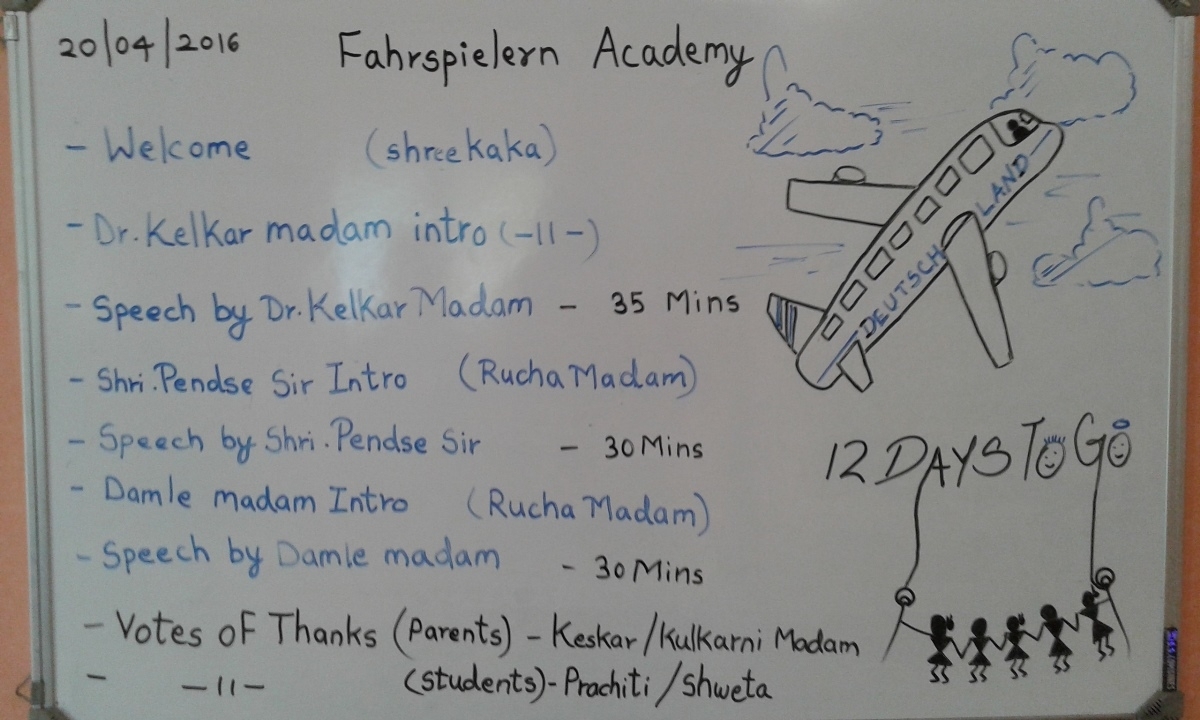 20/04/2016 Fahrspielern Academy
- Welcome (shreekaka)
- Dr. Kelkar madam intro (-11-)
- Speech by Dr. Kelkar Madam - 35 Mins
- Shri. Pendse Sir Intro (Rucha Madam)
- Speech by Shri. Pendse Sir - 30 Mins
- Damle madam Intro (Rucha Madam)
- Speech by Damle madam - 30 Mins
- Votes of Thanks (Parents) - Keskar/Kulkarni Madam
- -11- (students) - Prachiti/Shweta
DEUTSCHLAND
12 DAYS TO GO